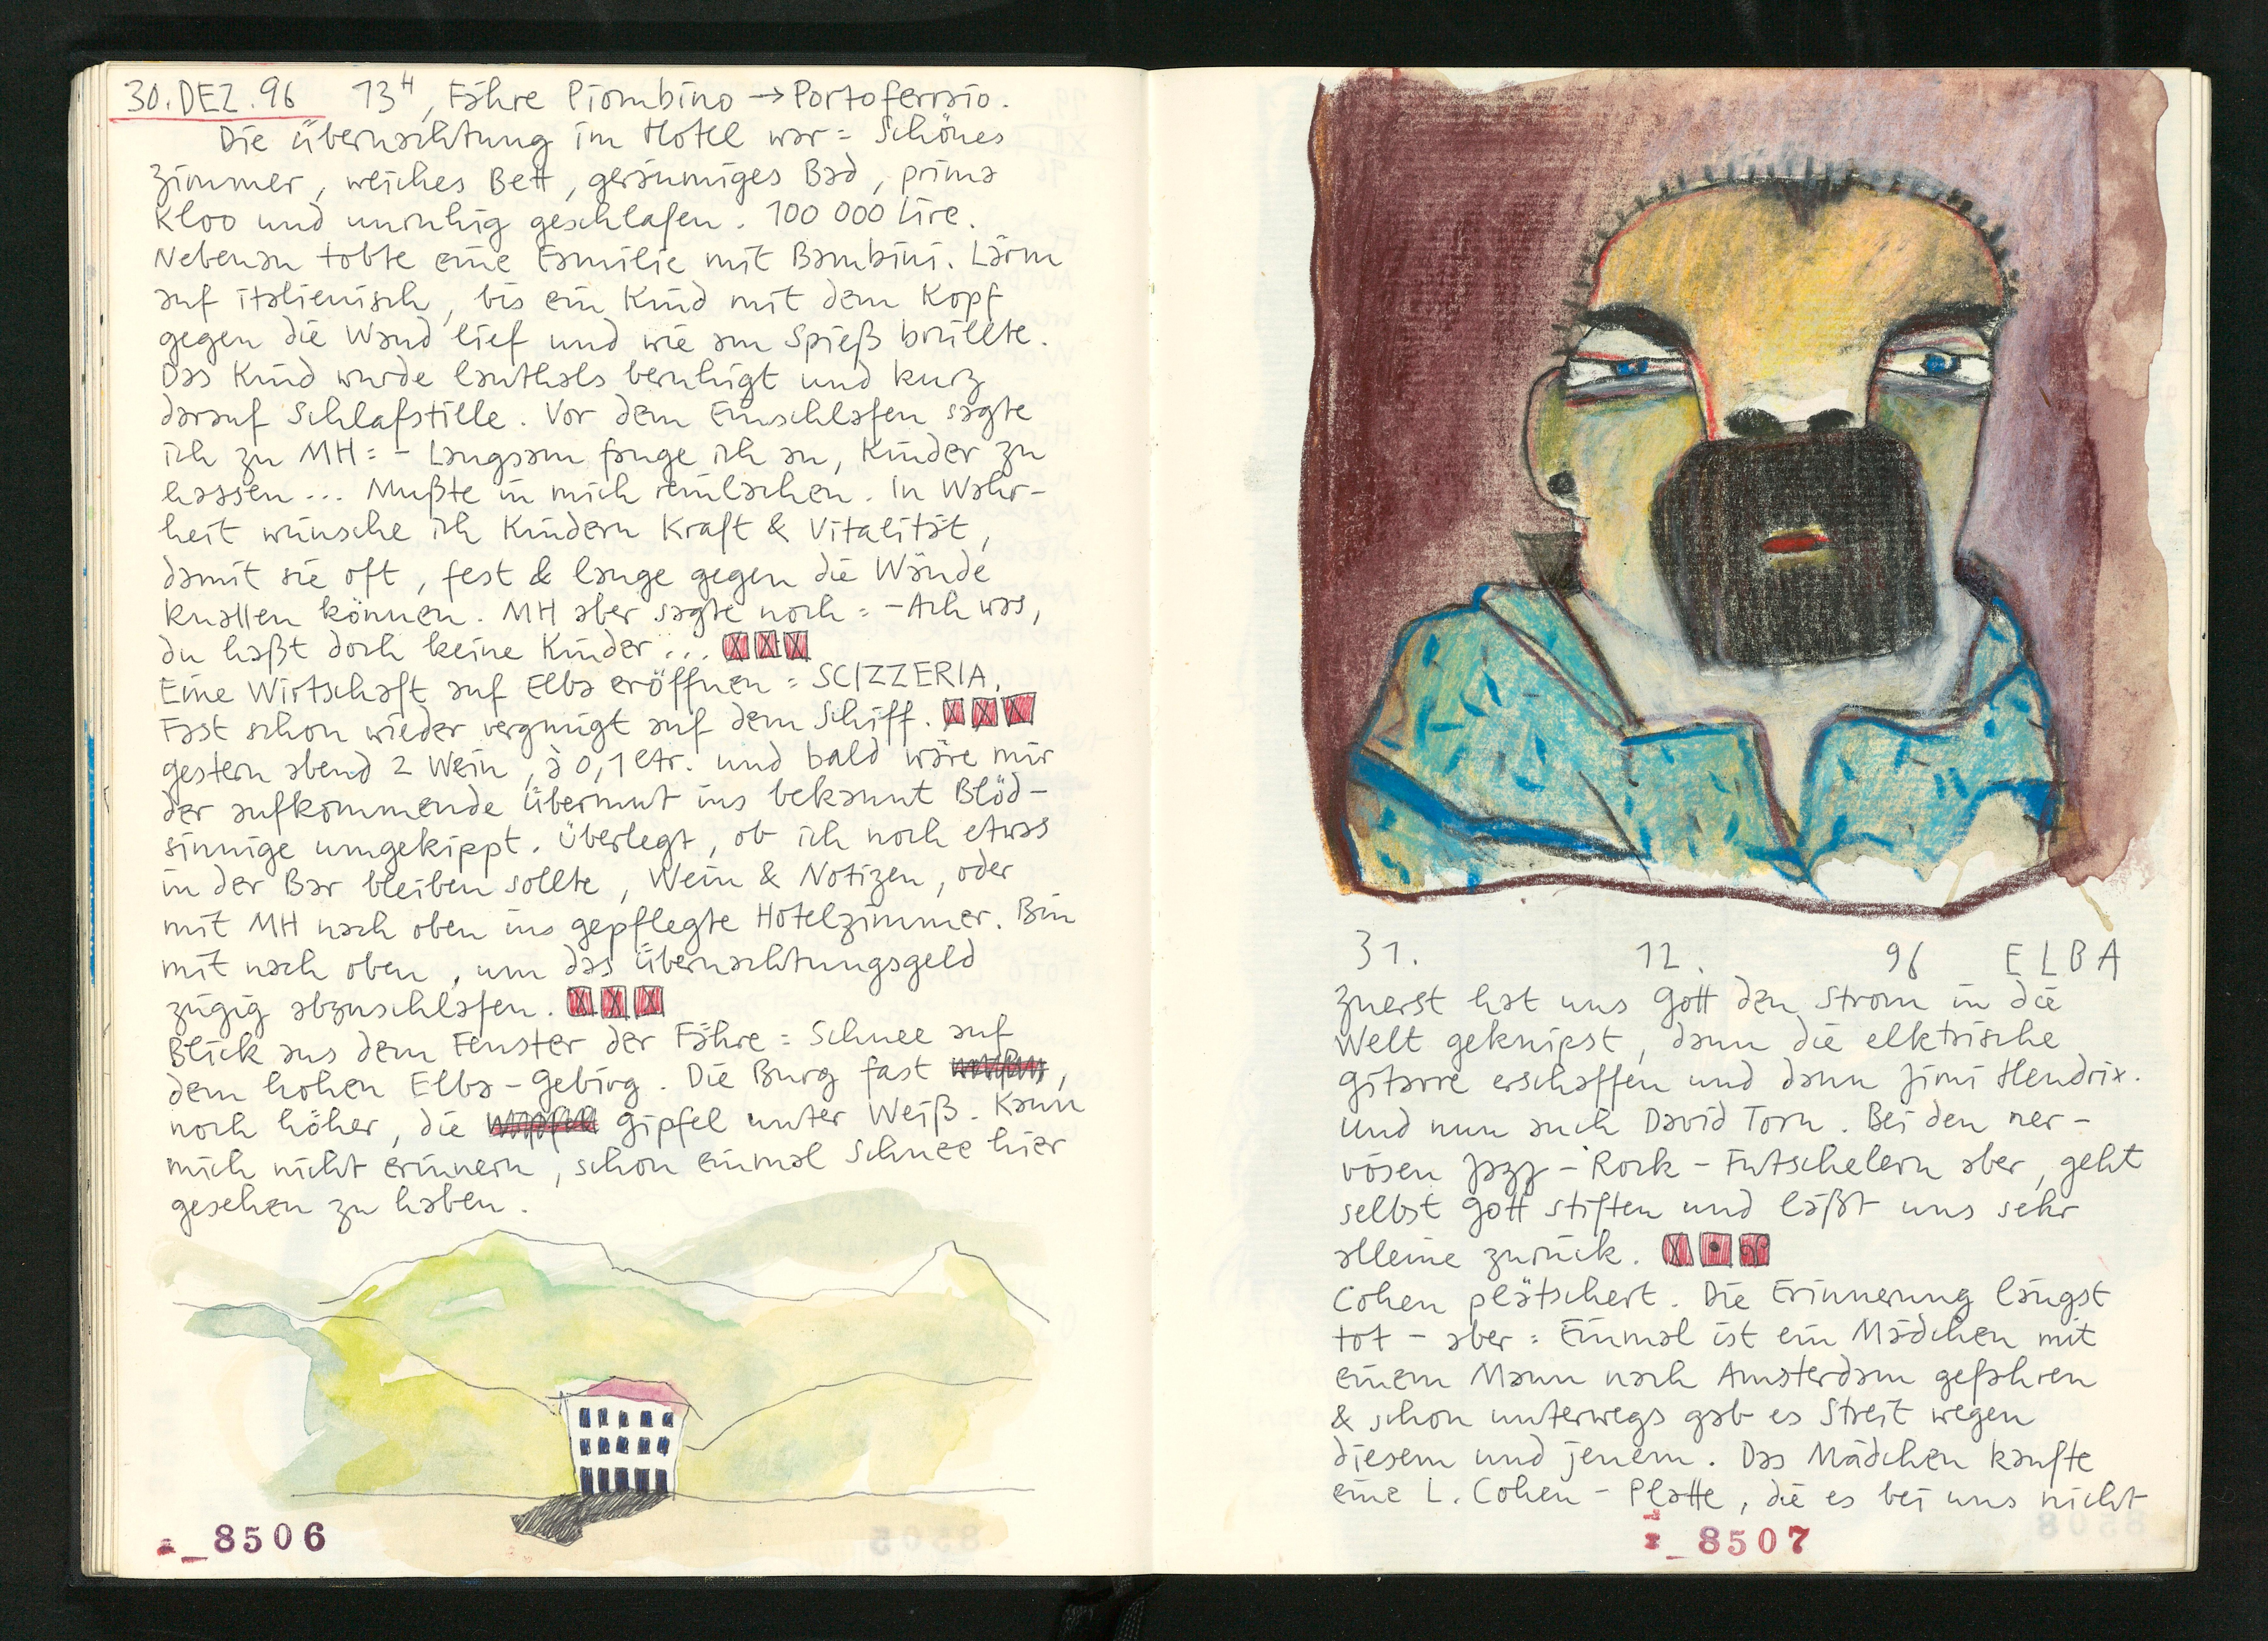 30.DEZ.96 13H, Fähre Piombino → Portoferraio.
Die Übernachtung im Hotel war = Schönes
Zimmer, weiches Bett, geräumiges Bad, prima
Kloo und unruhig geschlafen. 100 000 Lire.
Nebenan tobte eine Familie mit Bambini. Lärm
auf italienisch, bis ein Kind mit dem Kopf
gegen die Wand lief und wie am Spieß brüllte.
Das Kind wurde lauthals beruhigt und kurz
darauf Schlafstille. Vor dem Einschlafen sagte
ich zu MH = - Langsam fange ich an, Kinder zu
hassen... Mußte in mich reinlachen. In Wahr-
heit wünsche ich Kindern Kraft & Vitalität,
damit sie oft, fest & lange gegen die Wände
knallen können. MH aber sagte noch = - Ach was,
du haßt doch keine Kinder...
Eine Wirtschaft auf Elba eröffnen = SCIZZERIA.
Fast schon wieder vergnügt auf dem Schiff.
gestern abend 2 Wein, à 0,1 Ltr. und bald wäre mir
der aufkommende Übermut ins bekannt Blöd-
sinnige umgekippt. Überlegt, ob ich noch etwas
in der Bar bleiben sollte, Wein & Notizen, oder
mit MH nach oben ins gepflegte Hotelzimmer. Bin
mit nach oben, um das Übernachtungsgeld
zügig abzuschlafen.
Blick aus dem Fenster der Fähre = Schnee auf
dem hohen Elba-Gebirg. Die Burg fast ,
noch höher, die Gipfel unter Weiß. Kann
mich nicht erinnern, schon einmal Schnee hier
gesehen zu haben.
8506
31. 12. 96 ELBA
Zuerst hat uns Gott den Strom in die
Welt geknipst, dann die elktrische
Gitarre erschaffen und dann Jimi Hendrix.
Und nun auch David Torn. Bei den ner-
vösen Jazz-Rock-Futschelern aber, geht
selbst Gott stiften und läßt uns sehr
alleine zurück.
Cohen plätschert. Die Erinnerung längst
tot - aber = Einmal ist ein Mädchen mit
einem Mann nach Amsterdam gefahren
& schon unterwegs gab es Streit wegen
diesem und jenem. Das Mädchen kaufte
eine L. Cohen - Platte, die es bei uns nicht
8507